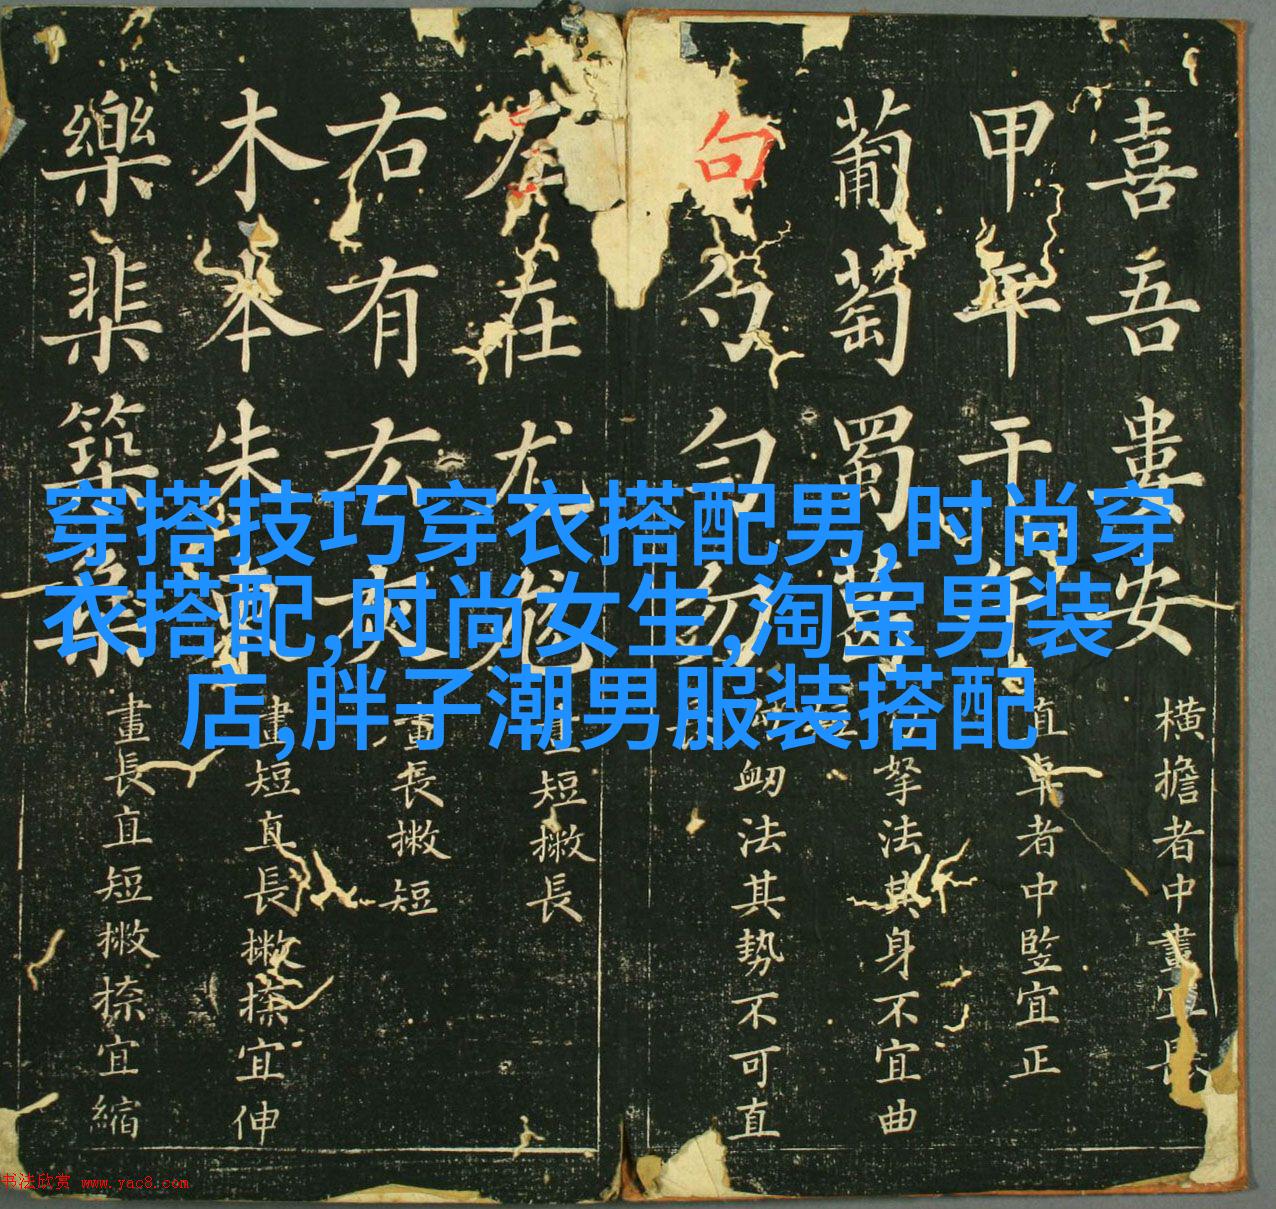 穿搭技巧穿衣搭配男,时尚穿
衣搭配,时尚女生,淘宝男装
店,胖子潮男服装搭配
喜吾婁安
横擔者中畫宜
甲年干
直卓者中監宜正
葡萄蜀
挐法其身不宜曲
句勺勻勿
法其勢不可直
左在尤尨
畫短撇長
右有友灰
畫長撇短
木本朱
畫短直長撇捺宜伸
樂棐築
畫長直短撇捺宜縮
书法欣赏 www.yac8.com